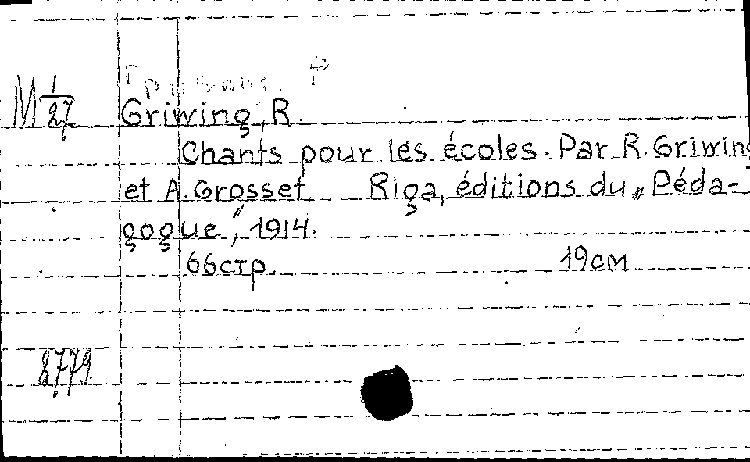 М 1/27
Griwing, R.
Chants pour les écoles. Par R. Griwing
et A. Grosset Riga, éditions du „Péda-
gogue", 1914.
66стр. 19см
2779